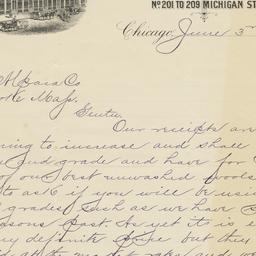 No 201 TO 209 MICHIGAN ST
Chicago, June 3
Co
Mass.
Gents.
Our receipts are
ing to increase and shall
and grade and have for
of our best unwashed wools
to ask if you will be using
grades such as we have
seasons past. As yet it is
ry definite price but they
at the market rates and we